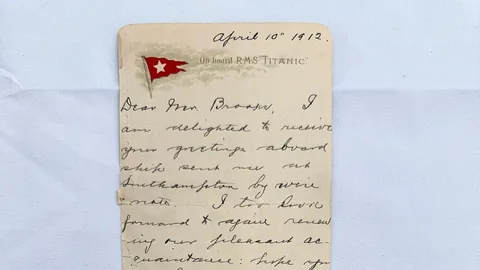 April 10th 1912.
On board R.M.S "TITANIC"
Dear Mr. I
am delighted to receive
your greetings aboard
ship sent me at
Southampton by wire
note. I too look
forward to again renew
ing our pleasant ac
quaintance: hope you